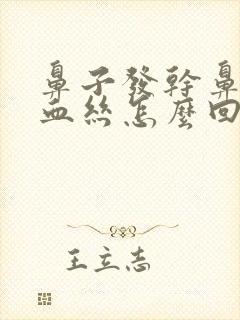 鼻子發幹鼻
血絲怎麼回
王立志